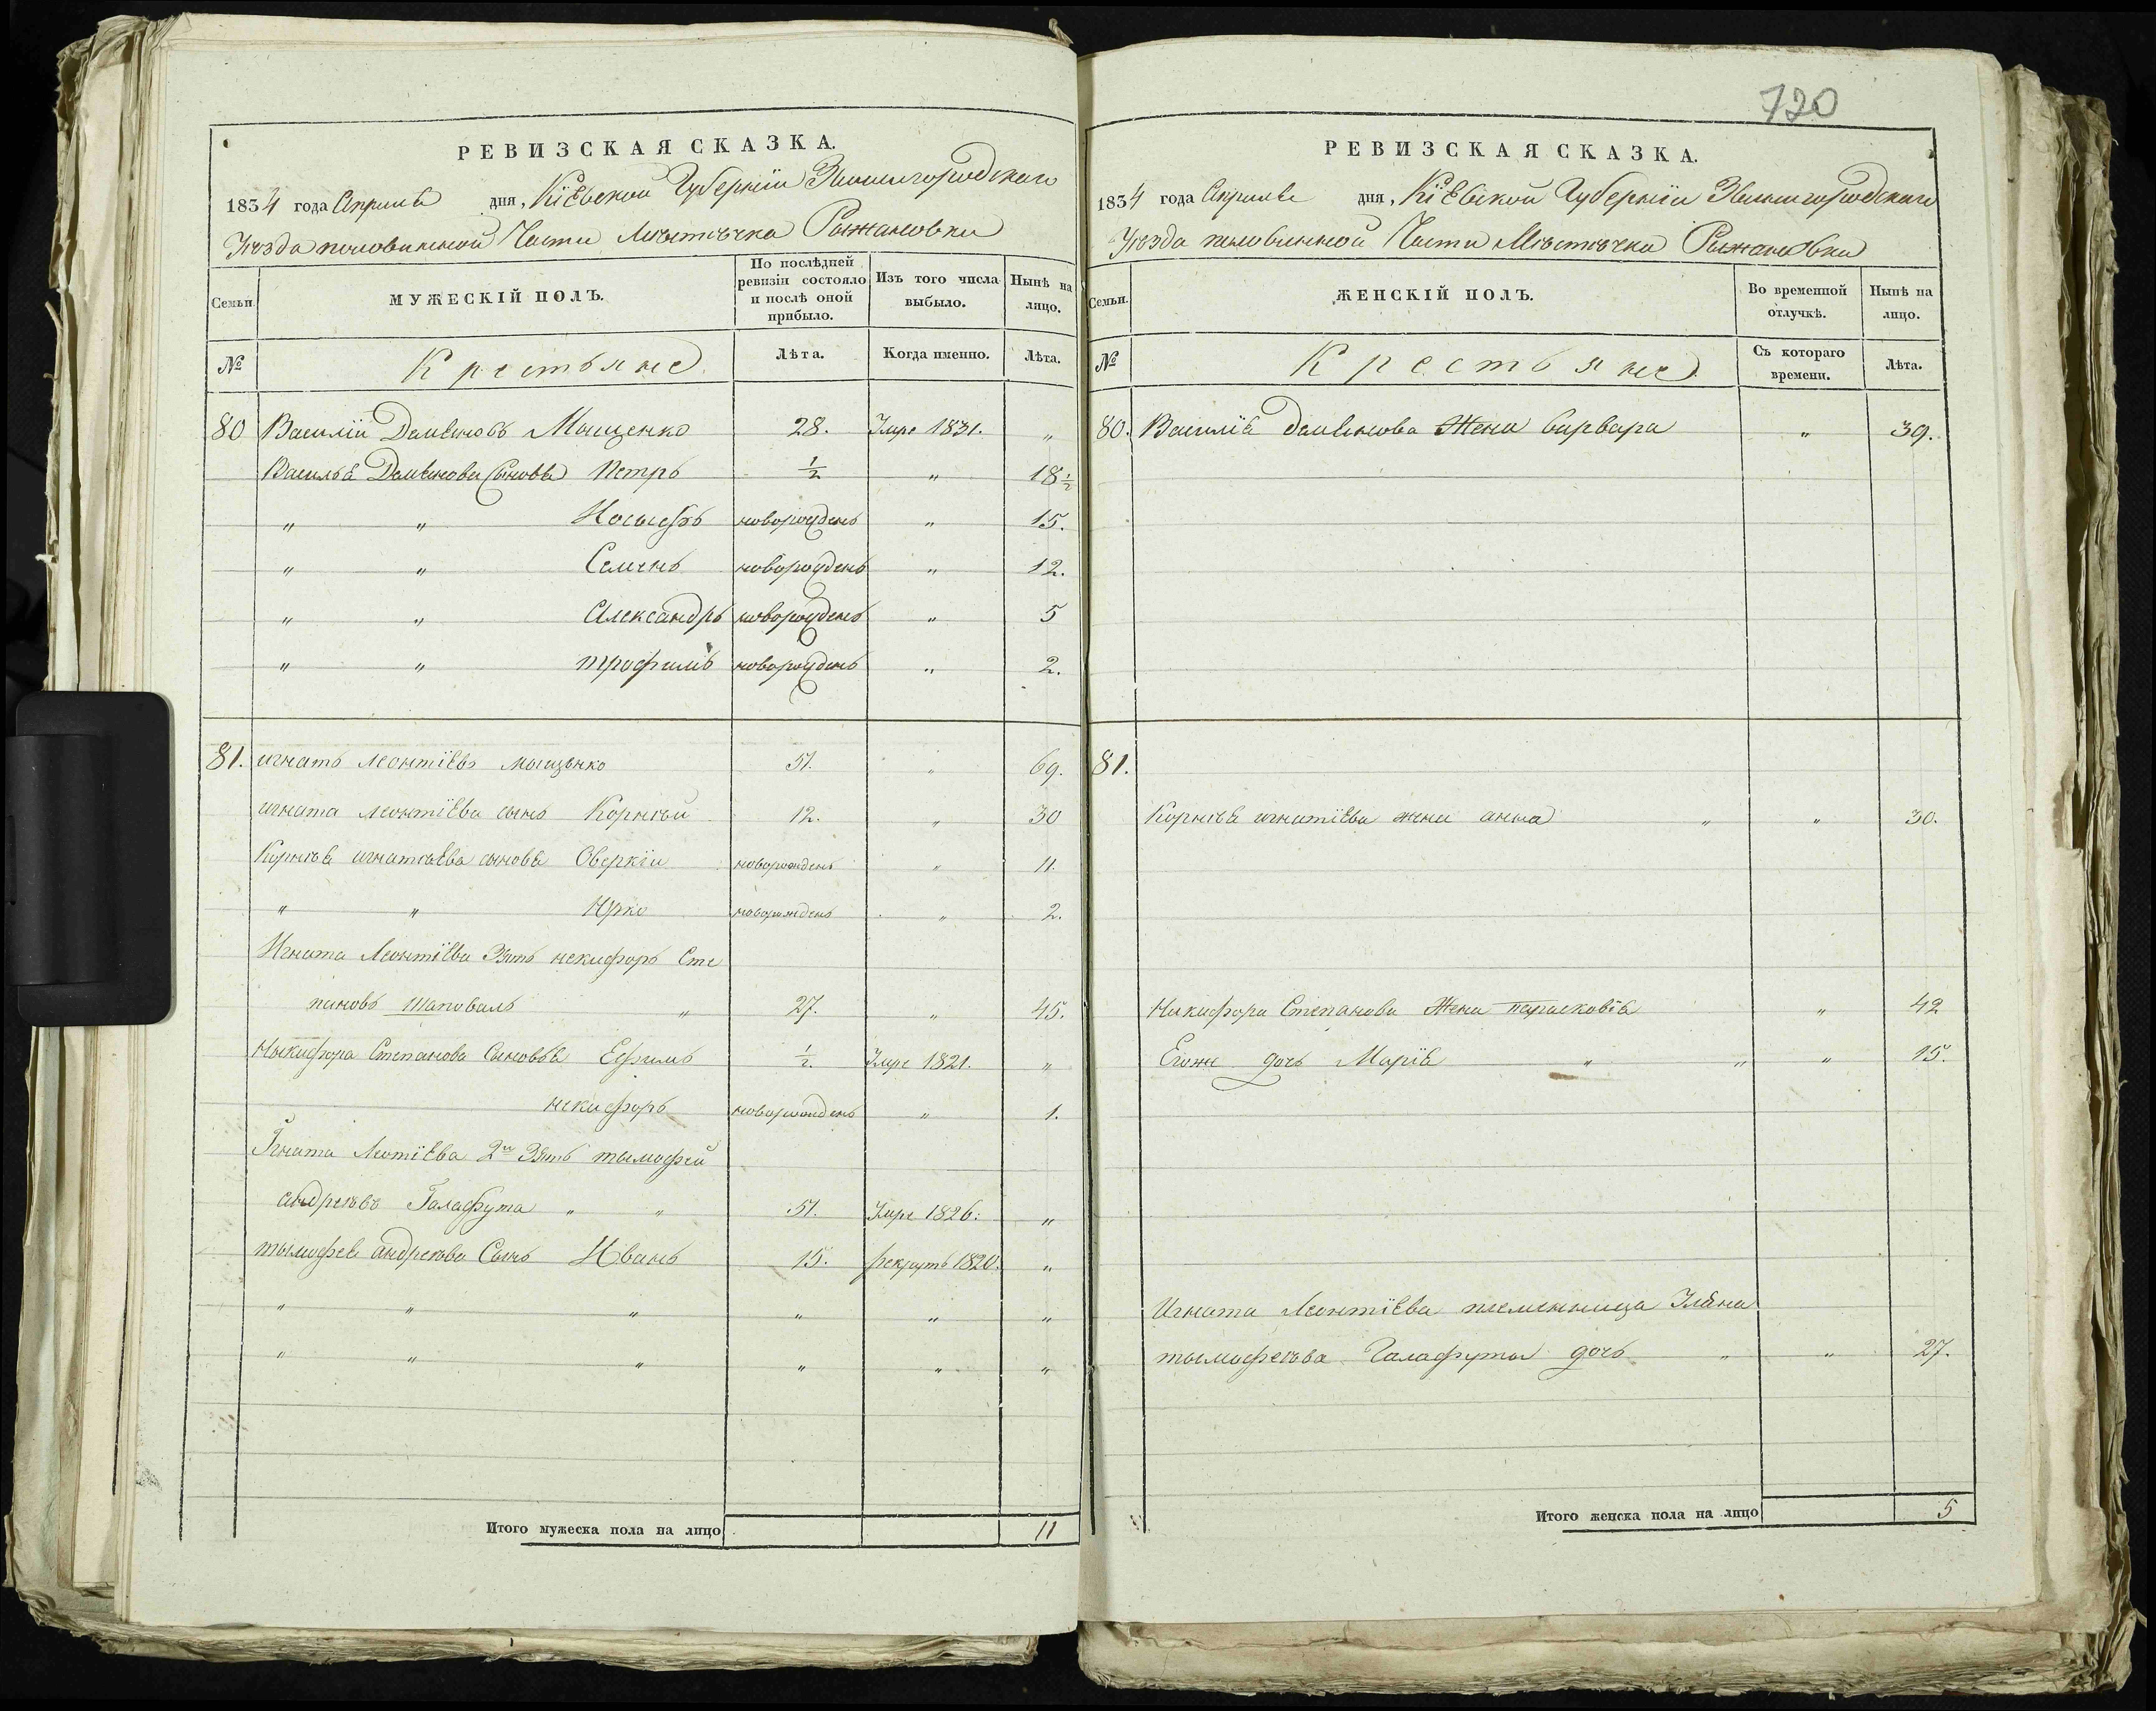 720
РЕВИЗСКАЯ СКАЗКА.
1834 года Апреля дня, Кіевской Губерніи Звенигородскаго
Уѣзда половинной Части Мѣстечка Рыжановки
Семьи. МУЖЕСКІЙ ПОЛЪ. По послѣдней ревизіи состояло и послѣ оной прибыло. Изъ того числа выбыло. Нынѣ на лицо.
№ Крестьяне Лѣта. Когда именно. Лѣта.
80 Василій Мощенко 28. Умре 1831. "
Василья Сыновья Петръ ½ " 18½
" " Иосифъ новорожденъ " 15.
" " Семенъ новорожденъ " 12.
" " Александръ новорожденъ " 5
" " трофимъ новорожденъ " 2.
81. игнатъ леонтіевъ мощенко 51. " 69.
игната леонтіева сынъ Корнѣй 12. " 30
Корнѣя игнатьева сыновья Оверкій новорожденъ " 11.
" " Юрко новорожденъ " 2.
Игната Леонтіева Зять некифоръ Сте
пановъ Шаповалъ " 27. " 45.
Никифора Степанова Сыновья Ефимъ ½. Умре 1821. "
некифоръ новорожденъ " 1.
Игната Леотіева 2й Зять тымофей
андреювъ Галафута " " 51. Умре 1826. "
тымофея андреюва Сынъ Иванъ 15. рекрутъ 1820. "
" " " " " "
" " " " " "
Итого мужеска пола на лицо 11
РЕВИЗСКАЯ СКАЗКА.
1834 года Апреля дня, Кіевской Губерніи Звенигородскаго
Уѣзда половинной Части Мѣстечка Рыжановки
Семьи. ЖЕНСКІЙ ПОЛЪ. Во временной отлучкѣ. Нынѣ на лицо.
№ Крестьяне Съ котораго времени. Лѣта.
80. Василія Жена варвара " 39.
81.
Корнѣя игнатіева жена анна " " 30.
Никифора Степанова Жена парасковія " 42
Егоже дочь Марія " " " 15.
Игната Леонтіева племенница Уляна
тымофеюва Галафуты дочь " " 27.
Итого женска пола на лицо 5